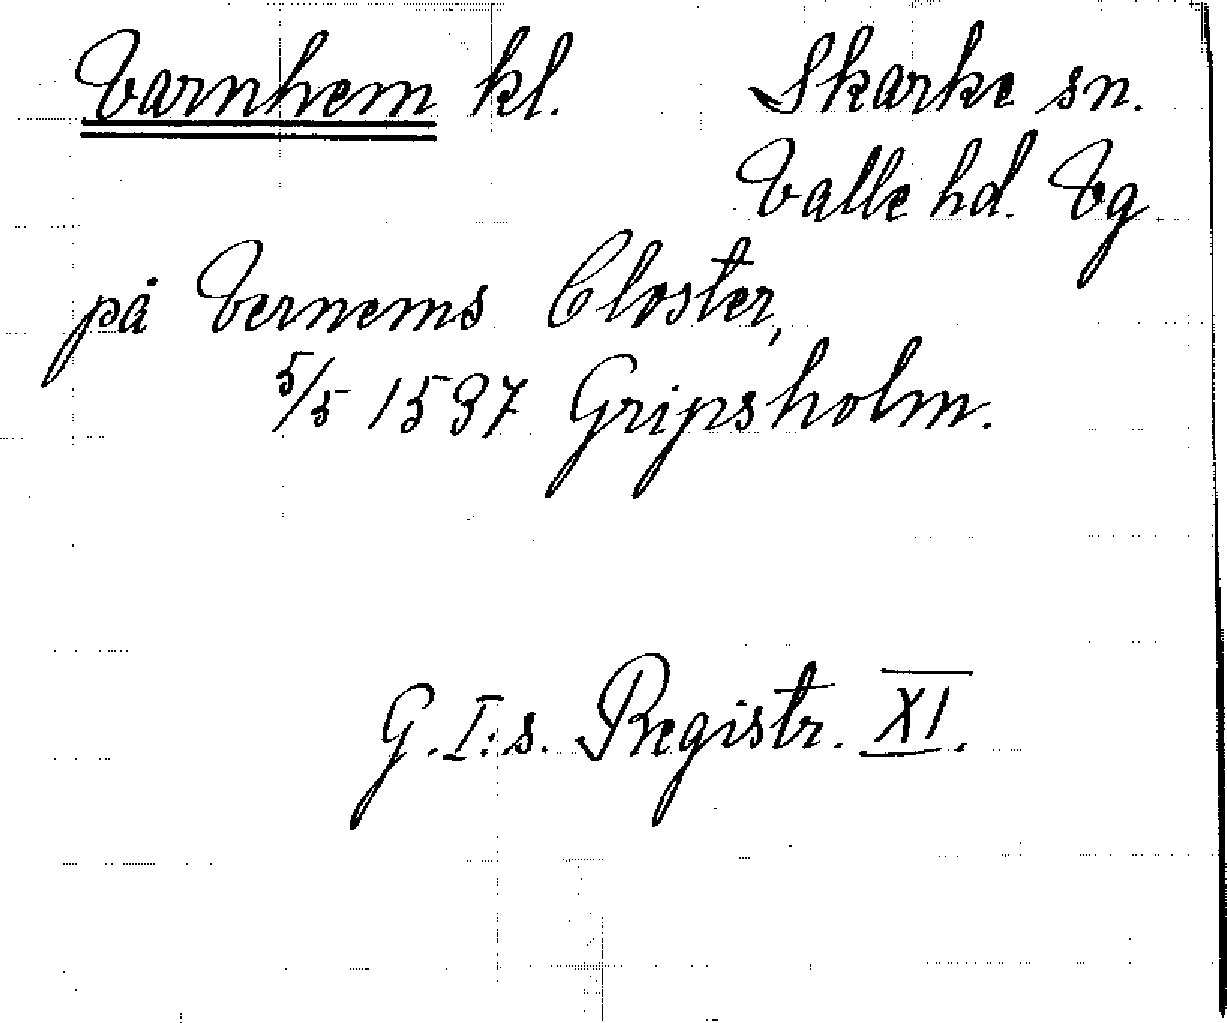 Varnhem kl.
Skarke sn.
Valle hd. Vg
på Vernems Closter,
5/5 1537 Gripsholm.
G. I:s. Registr. XI.